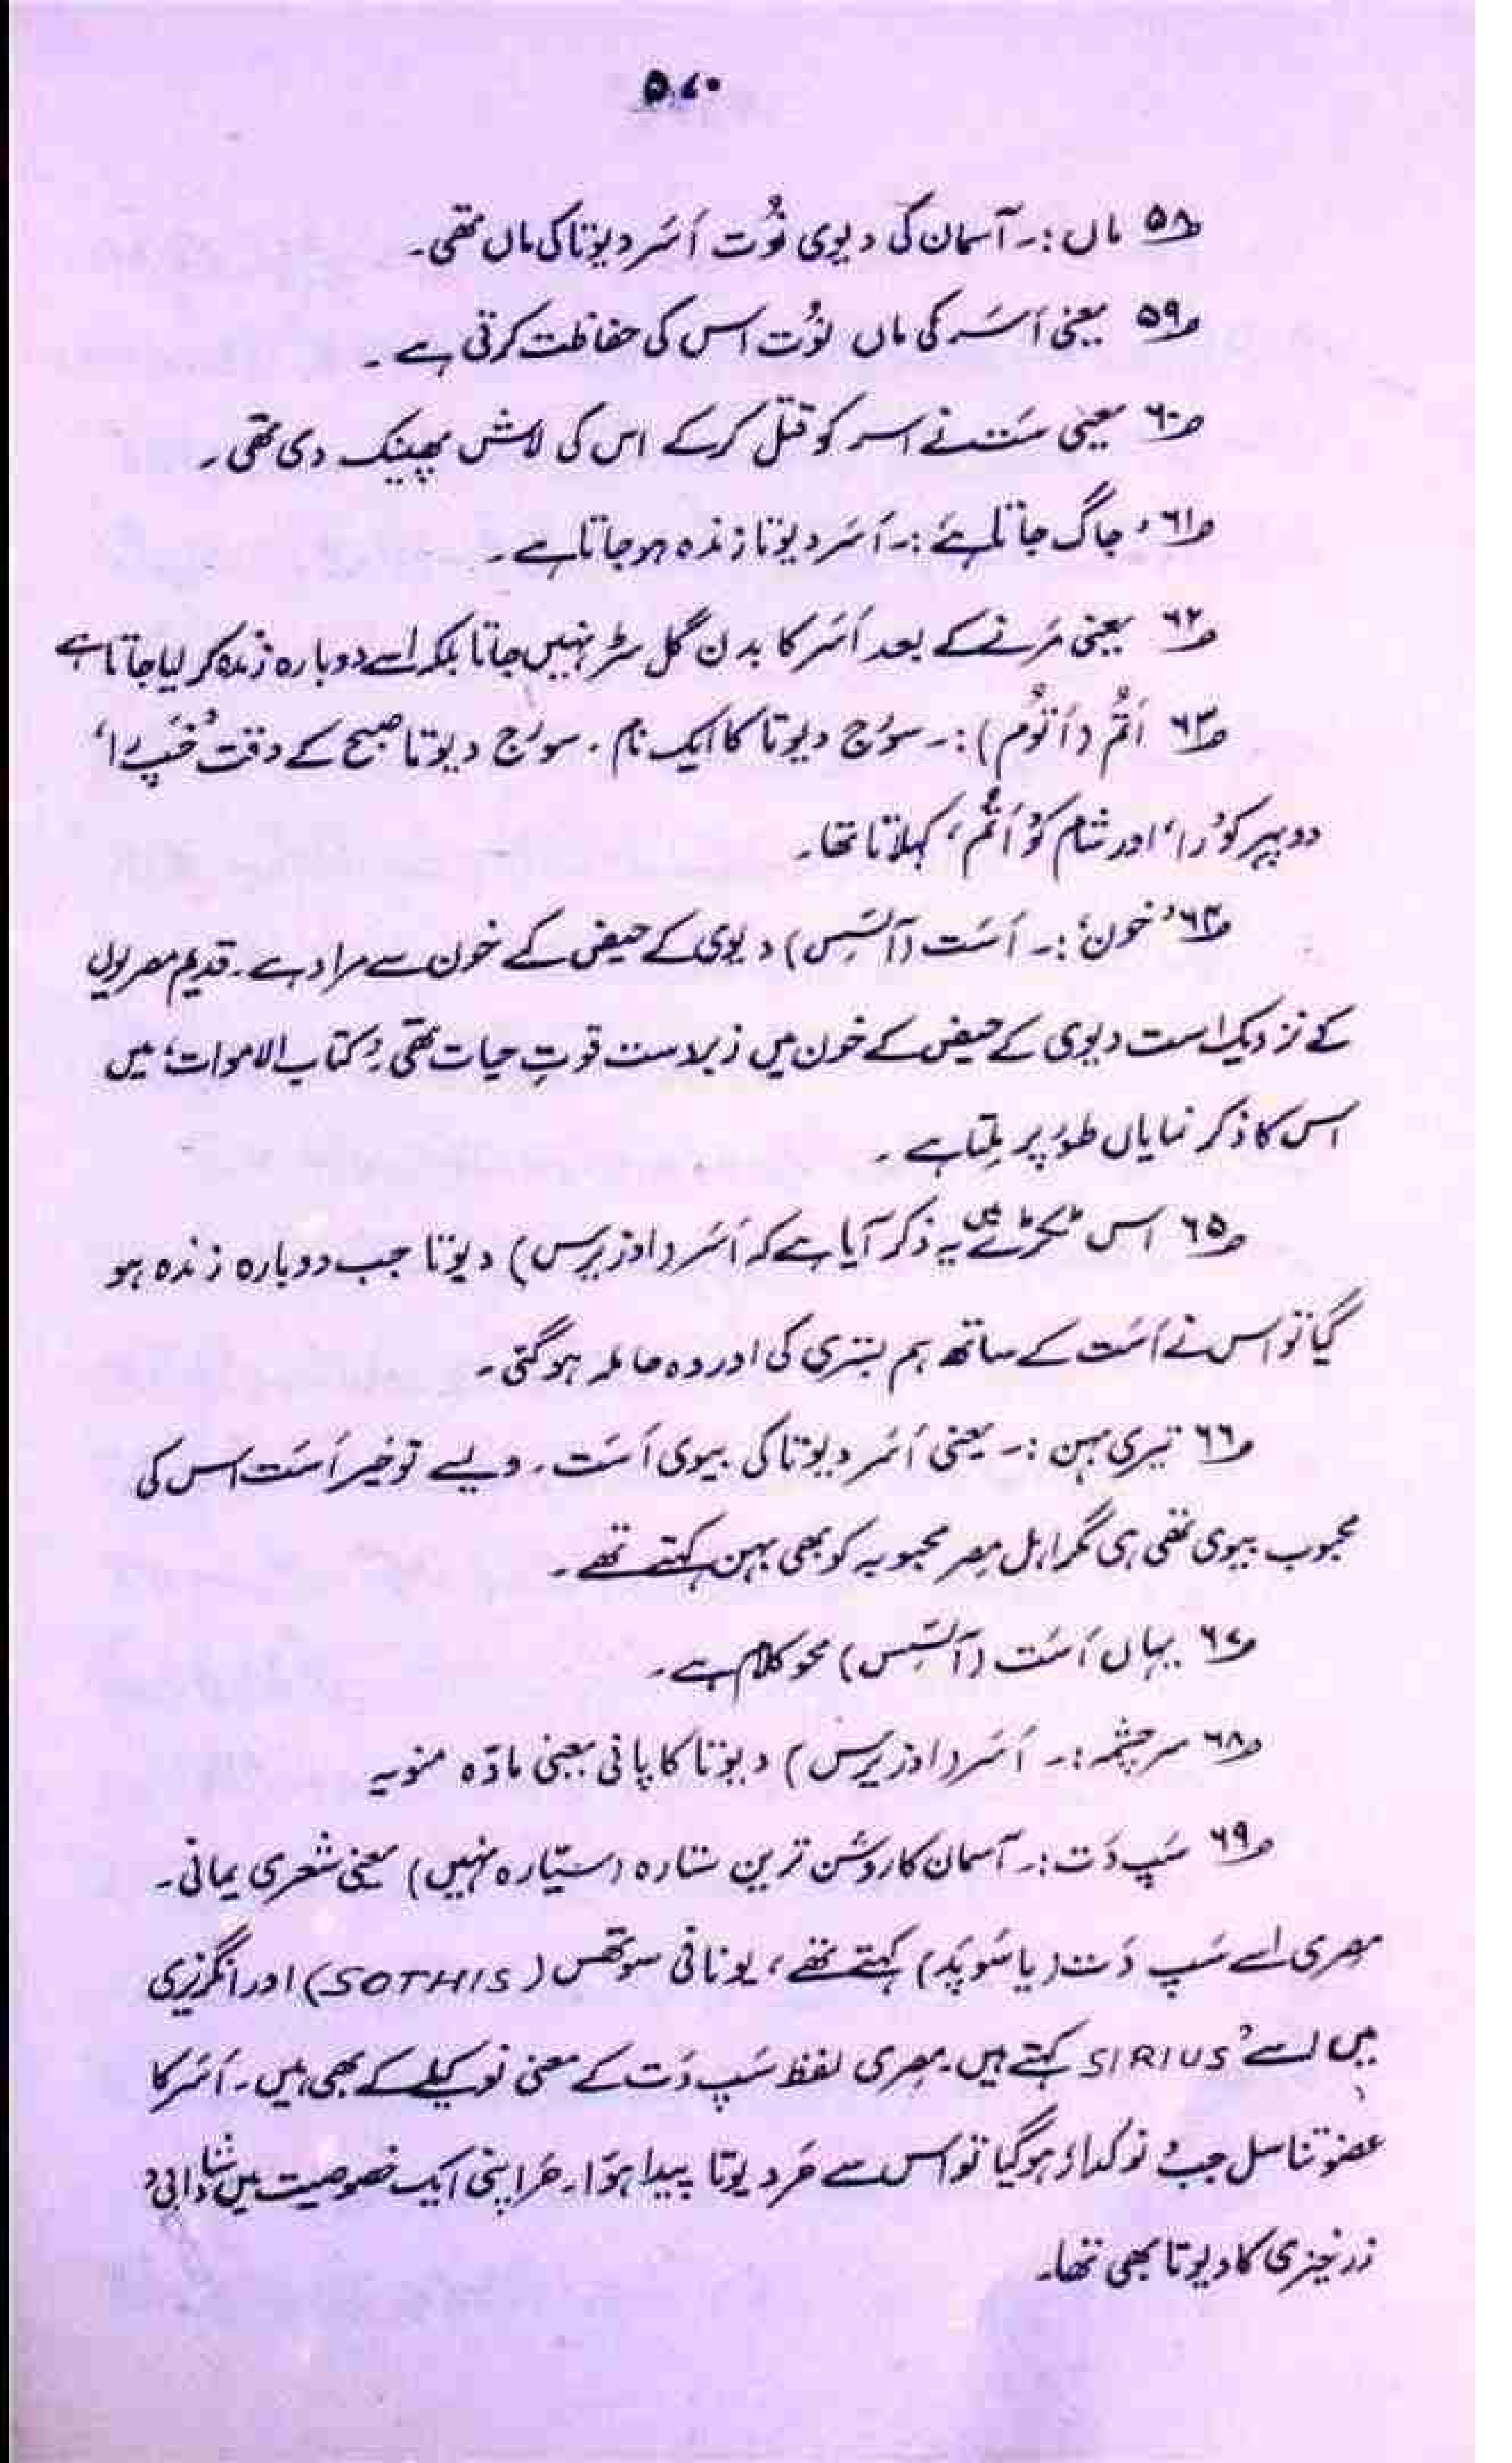 ۵۷۰
۵۸ ماں :۔ آسمان کی دیوی نُوت اَسَر دیوتا کی ماں تھی۔
۵۹ یعنی اَسَر کی ماں نُوت اس کی حفاظت کرتی ہے ۔
۶۰ یعنی سَت نے اسر کو قتل کرکے اس کی لاش پھینک دی تھی۔
۶۱ ’جاگ جاتا ہے‘ :۔ اَسَر دیوتا زندہ ہو جاتا ہے ۔
۶۲ یعنی مَرنے کے بعد اَسَر کا بدن گل سڑ نہیں جاتا بلکہ اسے دوبارہ زندہ کر لیا جاتا ہے
۶۳ اَتُم (اَتُوم) :۔ سورج دیوتا کا ایک نام ۔ سورج دیوتا صبح کے وقت ’خَپ را‘
دوپہر کو ’را‘ اور شام کو ’اَتُم‘ کہلاتا تھا۔
۶۴ ’خون‘ :۔ اَسَت (آئسِس) دیوی کے حیض کے خون سے مراد ہے ۔ قدیم مصریوں
کے نزدیک اَست دیوی کے حیض کے خون میں زبردست قوتِ حیات تھی ’کتاب الاموات‘ میں
اس کا ذکر نمایاں طور پر مِلتا ہے ۔
۶۵ اس ٹکڑے میں یہ ذکر آیا ہے کہ اَسَر (اوزیرس) دیوتا جب دوبارہ زندہ ہو
گیا تو اس نے اَسَت کے ساتھ ہم بستری کی اور وہ حاملہ ہو گئی ۔
۶۶ تیری بہن :۔ یعنی اَسَر دیوتا کی بیوی اَسَت ۔ ویسے تو خیر اَسَت اس کی
محبوب بیوی تھی ہی مگر اہل مصر محبوبہ کو بھی بہن کہتے تھے ۔
۶۷ یہاں اَسَت (آئسِس) محو کلام ہے ۔
۶۸ سرچشمہ :۔ اَسَر (اوزیرس) دیوتا کا پانی یعنی مادّہ منویہ
۶۹ سَپ دَت :۔ آسمان کا روشن ترین ستارہ (سیّارہ نہیں) یعنی شعری یمانی ۔
مصری اسے سَپ دَت (یا سَوپد) کہتے تھے ، یونانی سوتھس (SOTHIS) اور انگریزی
میں اسے ’SIRIUS کہتے ہیں ۔ مصری لفظ سَپ دَت کے معنی نوکیلے کے بھی ہیں ۔ اَسَر کا
عضو تناسل جب ’نوکدار‘ ہو گیا تو اس سے حَر دیوتا پیدا ہوا ۔ حَر اپنی ایک خصوصیت میں شادابی و
زرخیزی کا دیوتا بھی تھا۔